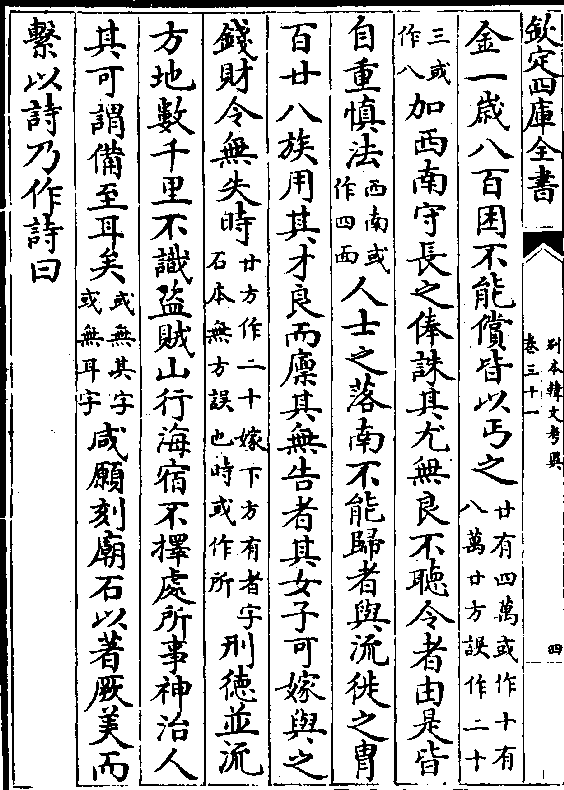 欽定四庫全書
别本韓文考異
卷三十一
四
金一歲八百困不能償皆以丐之廿有四萬或作十有八萬廿方誤作二十
三或作八加西南守長之俸誅其尤無良不聽令者由是皆
自重慎法西南或作四面人士之落南不能歸者與流徙之胄
百廿八族用其才良而廩其無告者其女子可嫁與之
錢財令無失時廿方作二十嫁下方有者字石本無方誤也時或作所刑徳並流
方地數千里不識盗賊山行海宿不擇處所事神治人
其可謂備至耳矣或無其字或無耳字咸願刻廟石以著厥美而
繫以詩乃作詩曰